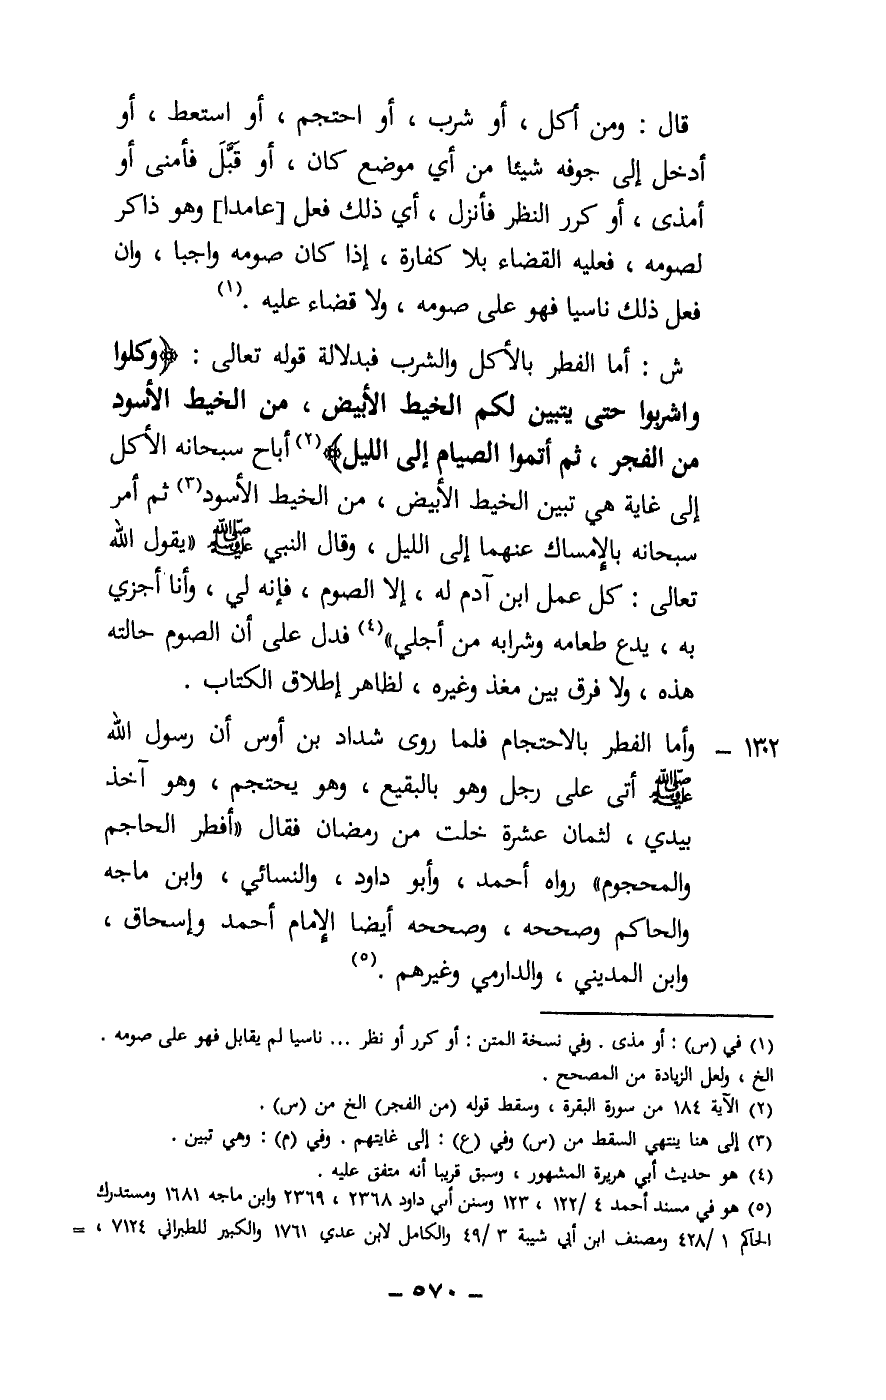 قال : ومن أكل ، أو شرب ، أو احتجم ، أو استعط ، أو
أدخل إلى جوفه شيئا من أي موضع كان ، أو قَبَّلَ فأمنى أو
أمذى ، أو كرر النظر فأنزل ، أي ذلك فعل [عامدا] وهو ذاكر
لصومه ، فعليه القضاء بلا كفارة ، إذا كان صومه واجبا ، وان
فعل ذلك ناسيا فهو على صومه ، ولا قضاء عليه .(١)
ش : أما الفطر بالأكل والشرب فبدلالة قوله تعالى : ﴿وكلوا
واشربوا حتى يتبين لكم الخيط الأبيض ، من الخيط الأسود
من الفجر ، ثم أتموا الصيام إلى الليل﴾(٢) أباح سبحانه الأكل
إلى غاية هي تبين الخيط الأبيض ، من الخيط الأسود(٣) ثم أمر
سبحانه بالإمساك عنهما إلى الليل ، وقال النبي ﷺ «يقول الله
تعالى : كل عمل ابن آدم له ، إلا الصوم ، فإنه لي ، وأنا أجزي
به ، يدع طعامه وشرابه من أجلي»(٤) فدل على أن الصوم حالته
هذه ، ولا فرق بين مغذ وغيره ، لظاهر إطلاق الكتاب .
١٣٠٢ – وأما الفطر بالاحتجام فلما روى شداد بن أوس أن رسول الله
ﷺ أتى على رجل وهو بالبقيع ، وهو يحتجم ، وهو آخذ
بيدي ، لثمان عشرة خلت من رمضان فقال «أفطر الحاجم
والمحجوم» رواه أحمد ، وأبو داود ، والنسائي ، وابن ماجه
والحاكم وصححه ، وصححه أيضا الإمام أحمد وإسحاق ،
وابن المديني ، والدارمي وغيرهم .(٥)
(١) في (س) : أو مذى . وفي نسخة المتن : أو كرر أو نظر ... ناسيا لم يقابل فهو على صومه .
الخ ، ولعل الزيادة من المصحح .
(٢) الآية ١٨٤ من سورة البقرة ، وسقط قوله (من الفجر) الخ من (س) .
(٣) إلى هنا ينتهي السقط من (س) وفي (ع) : إلى غايتهم . وفي (م) : وهي تبين .
(٤) هو حديث أبي هريرة المشهور ، وسبق قريبا أنه متفق عليه .
(٥) هو في مسند أحمد ٤ /١٢٢ ، ١٢٣ وسنن أبي داود ٢٣٦٨ ، ٢٣٦٩ وابن ماجه ١٦٨١ ومستدرك
الحاكم ١ /٤٢٨ ومصنف ابن أبي شيبة ٣ /٤٩ والكامل لابن عدي ١٧٦١ والكبير للطبراني ٧١٢٤ ، =
– ٥٧٠ –